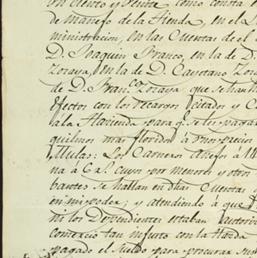 on Ciento y Veinte como consta
de manejo de la Hazienda, en el
ministracion, en las Cuentas de el
D. Joaquin Franco, en la de D.
Zoraya, en la de D. Cayetano Zor
de D. Fran.co Zoraya, que se han
efectos con los recargos citados y C
a la Hazienda para q.e le pague
quilmos mas floridos à
Mulas: Los Carneros Añejos à 1
na à 6 r.s cuyos por menores y otro
bantes se hallan en dhas Cuentas
en mi poder; y atendiendo à que
ni los Dependientes estaban
comercio tan injusto con la Hazda
pagado el sueldo para procurar